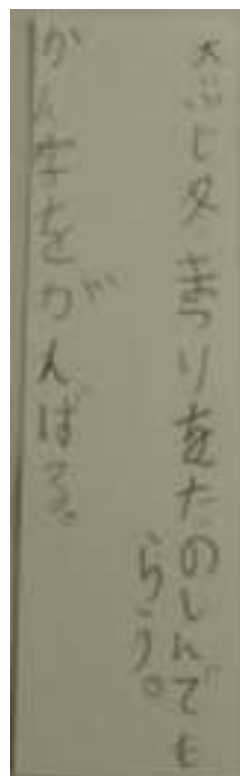 大ぶヒタまつりをたのしんでも
らう。
かん字をがんばる。